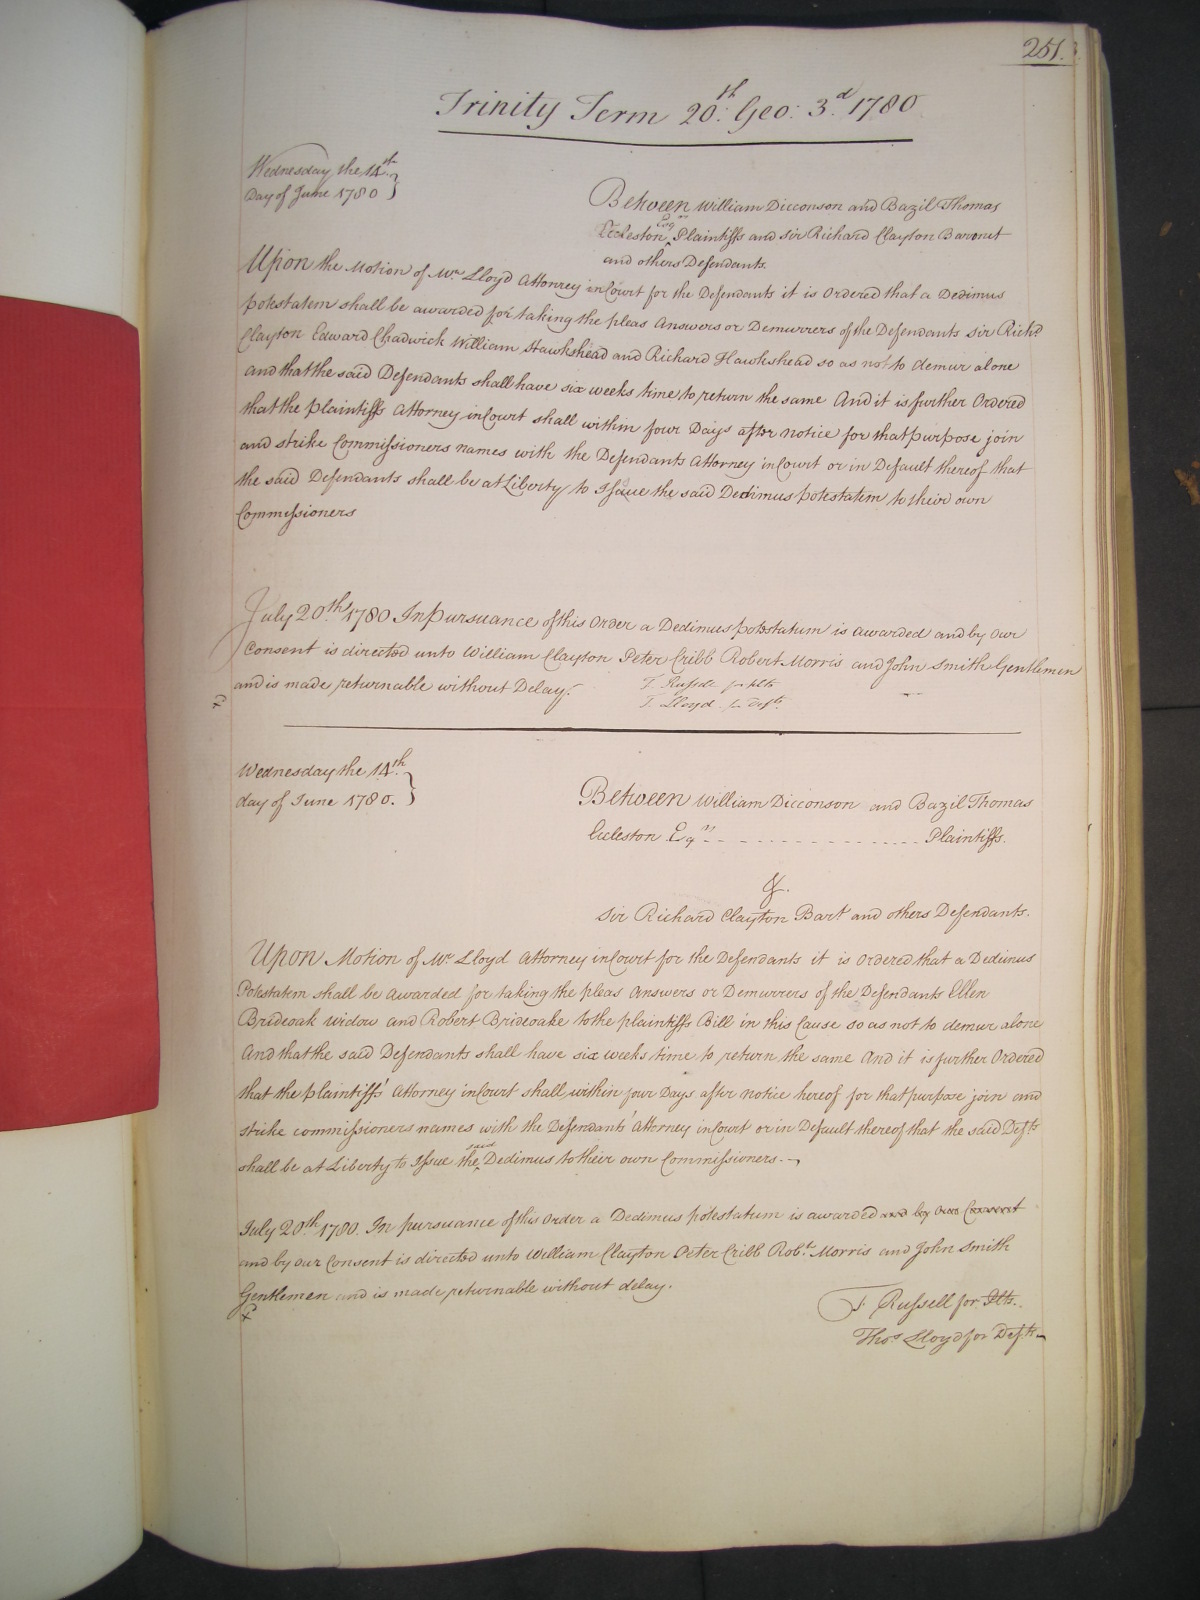 251.
Trinity Term 20.th Geo: 3.d 1780
Wednesday the 14th
Day of June 1780
Between William Dicconson and Bazil Thomas
Eccleston Esqrs Plaintiffs and Sir Richard Clayton Baronet
and others Defendants.
Upon the Motion of Mr. Lloyd Attorney in Court for the Defendants it is Ordered that a Dedimus
potestatem shall be awarded for taking the pleas Answers or Demurrers of the Defendants Sir Richd.
Clayton Edward Chadwick William Hawkshead and Richard Hawkshead so as not to demur alone
and that the said Defendants shall have six weeks time to return the same And it is further Ordered
that the plaintiffs Attorney in Court shall within four Days after notice for that purpose join
and strike Commissioners names with the Defendants Attorney in Court or in Default thereof that
the said Defendants shall be at Liberty to Issue the said Dedimus potestatem to their own
Commissioners
July 20th. 1780 In pursuance of this Order a Dedimus potestatum is awarded and by our
Consent is directed unto William Clayton Peter Cribb Robert Morris and John Smith Gentlemen
and is made returnable without Delay.
T. Russell for plts
T. Lloyd for Defts.
Wednesday the 14.th
day of June 1780.
Between William Dicconson and Bazil Thomas
Eccleston Esqrs - - - - - - - - - - Plaintiffs.
&.
Sir Richard Clayton Bart and others Defendants.
Upon Motion of Mr. Lloyd Attorney in Court for the Defendants it is Ordered that a Dedimus
Potestatem shall be awarded for taking the pleas Answers or Demurrers of the Defendants Ellen
Brideoak widow and Robert Brideoake to the plaintiffs Bill in this Cause so as not to demur alone
And that the said Defendants shall have six weeks time to return the same And it is further Ordered
that the plaintiffs' Attorney in Court shall within four Days after notice hereof for that purpose join and
strike commissioners names with the Defendants' Attorney in Court or in Default thereof that the said Defts.
shall be at Liberty to Issue the said Dedimus to their own Commissioners.
July 20th. 1780. In pursuance of this Order a Dedimus potestatum is awarded and by Our Consent
and by our Consent is directed unto William Clayton Peter Cribb Robt. Morris and John Smith
Gentlemen and is made returnable without delay.
T. Russell for Plts.
Thos. Lloyd for Defts.